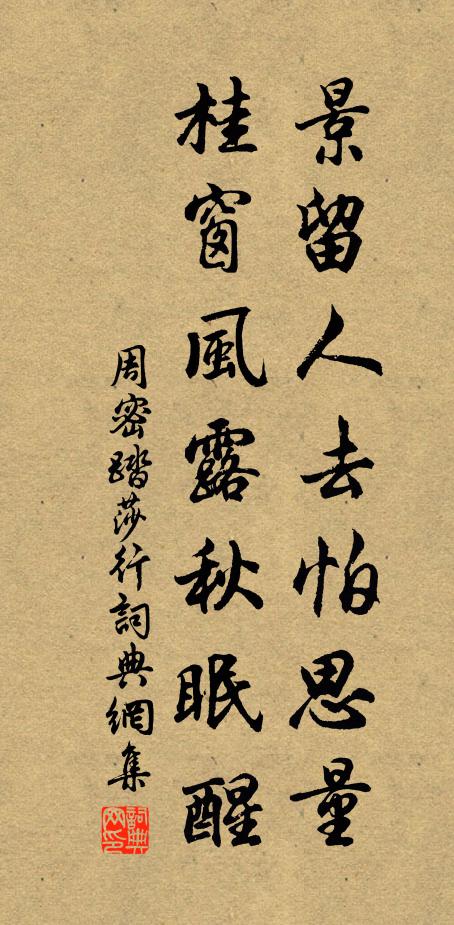 景留人去怕思量
桂窗風露秋眠醒
周密踏莎行詞典網集
詞典
网印